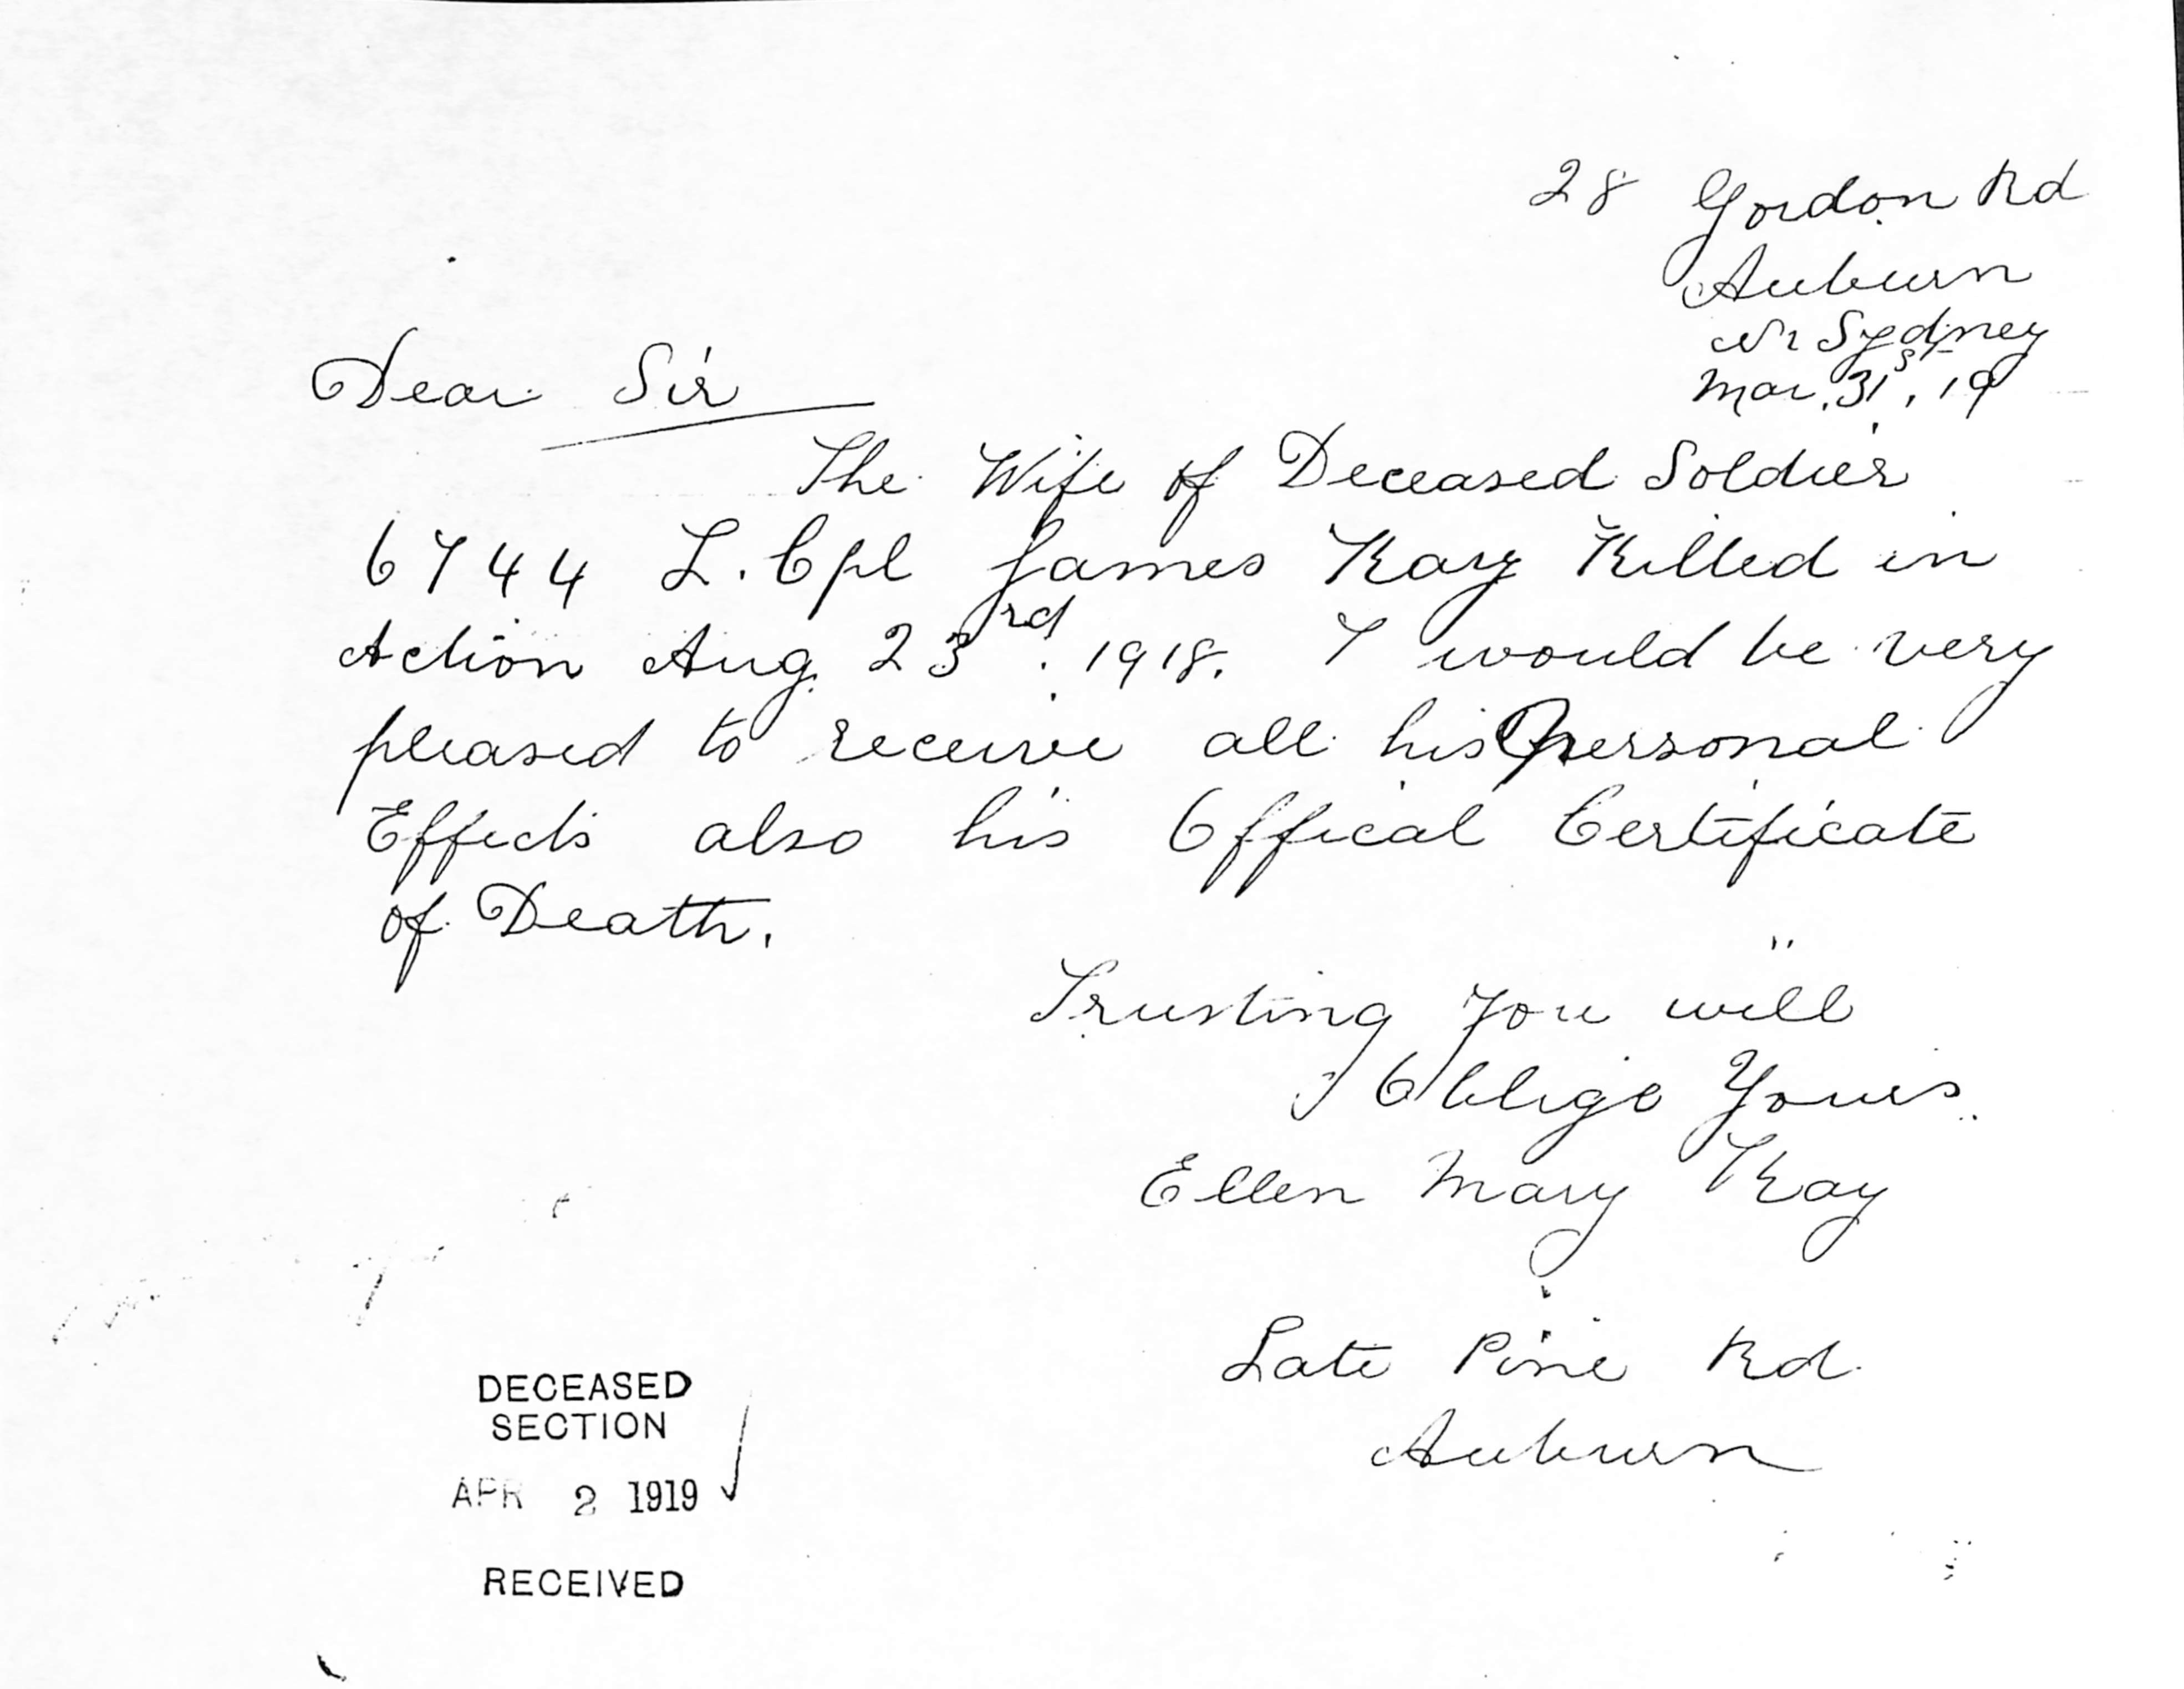 28 Gordon Rd
Auburn
Nr Sydney
Mar. 31st, 19
Dear Sir
The Wife of Deceased Soldier
6744 L. Cpl James Kay Killed in
Action Aug. 23rd. 1918. I would be very
pleased to receive all his Personal
Effects also his Offical Certificate
of Death.
Trusting You will
Oblige Yours.
Ellen Mary Kay
Late Pine Rd.
Auburn
DECEASED
SECTION
APR 2 1919
RECEIVED